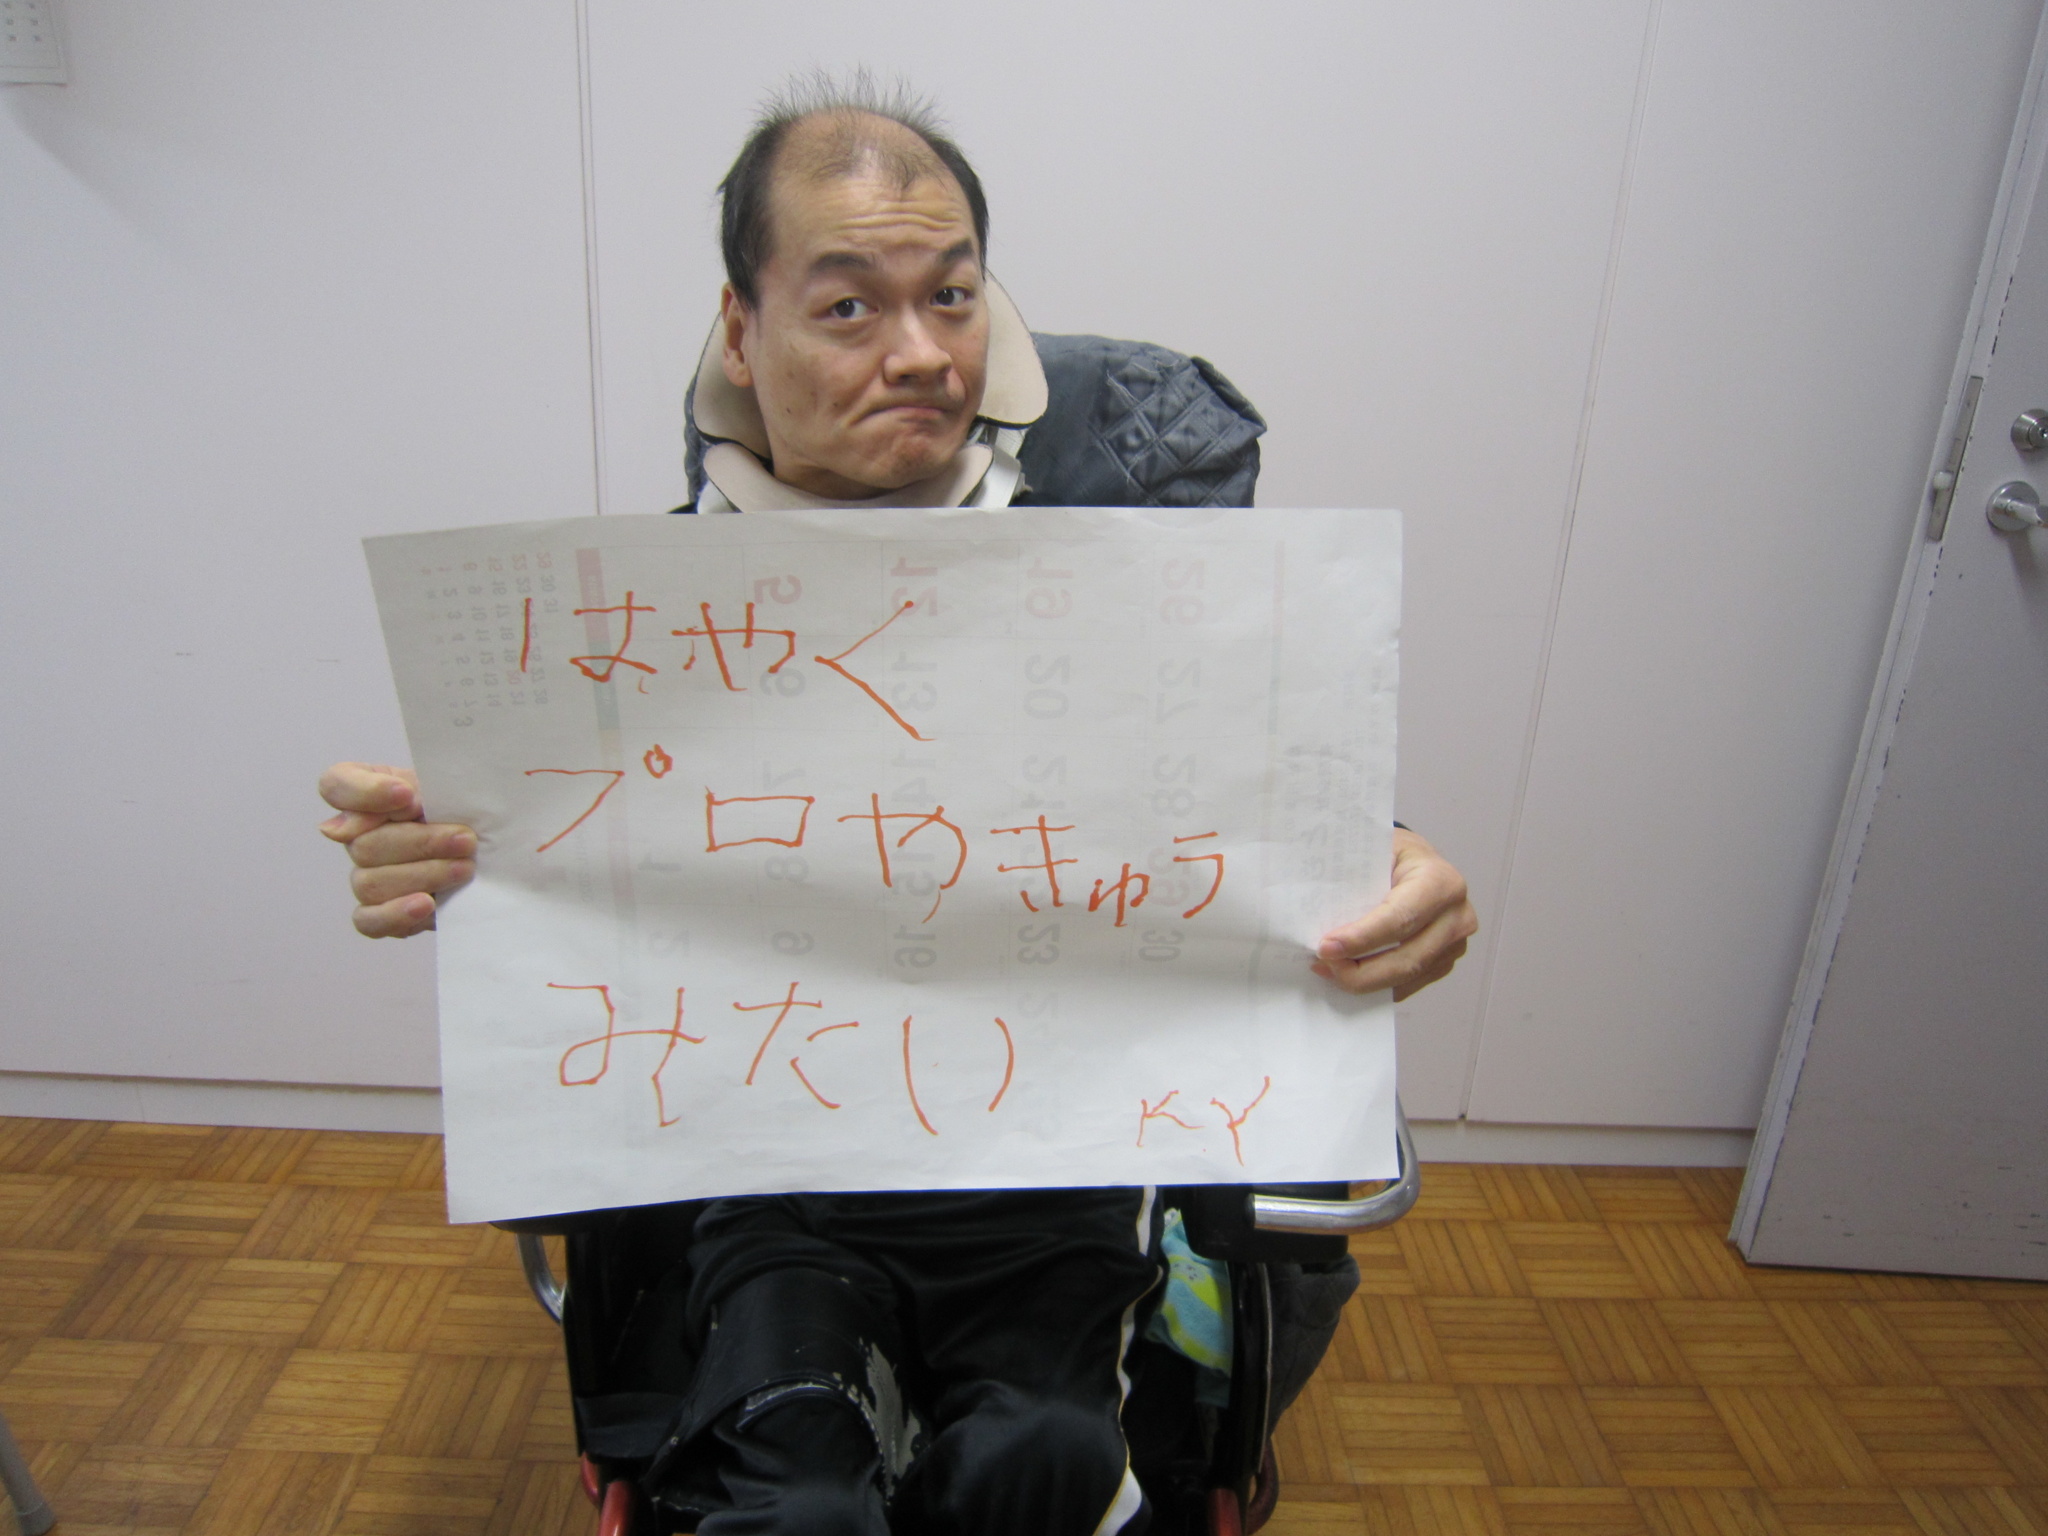 はやく
プロやきゅう
みたい
KY